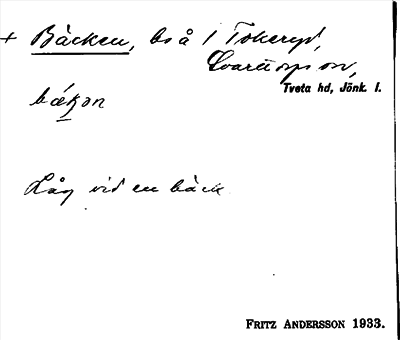 + Bäcken, bs å 1 Tokeryd,
Svarttorps sn,
Tveta hd, Jönk. l.
bækən
Låg vid en bäck
FRITZ ANDERSSON 1933.